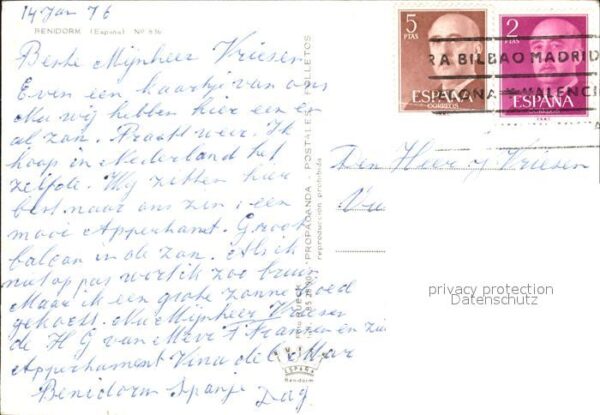 14 Jan 76
BENIDORM (España) Nº 636
Beste Mijnheer Vriesen
Even een kaartje van ons
Nu wij hebben hier een en
al zon. Praatt weer. Ik
hoop in Nederland het
zelfde. Wij zitten hier
best naar ons zin: een
mooi Apperhamt. Groot
balcon in de zon. Als ik
niet op pas wort ik zoo bruin
Maar ik een grote zonne hoed
gekocht. Nu Mijnheer Vriesen
de H G van Mevr F Franzen en
Apperhament Vina del Mar
Benidorm Spanje Dag
PROPAGANDA - POSTALES
reproducción prohibida
ESPAÑA
Benidorm
5
PTAS
ESPAÑA
CORREOS
2
PTAS
ESPAÑA
BILBAO MADRID
Den Heer J Vriesen
privacy protection
Datenschutz